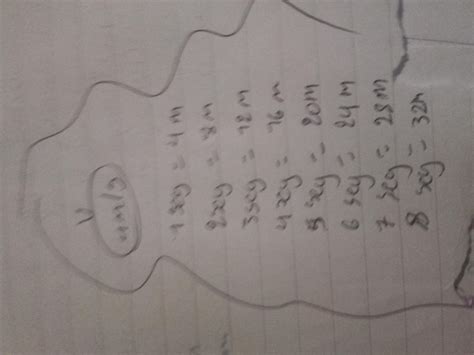 4m/s
1 seg = 4 m
2seg = 8 m
3seg = 12 m
4 seg = 16 m
5 seg = 20m
6 seg = 24 m
7 seg = 28m
8 seg = 32m